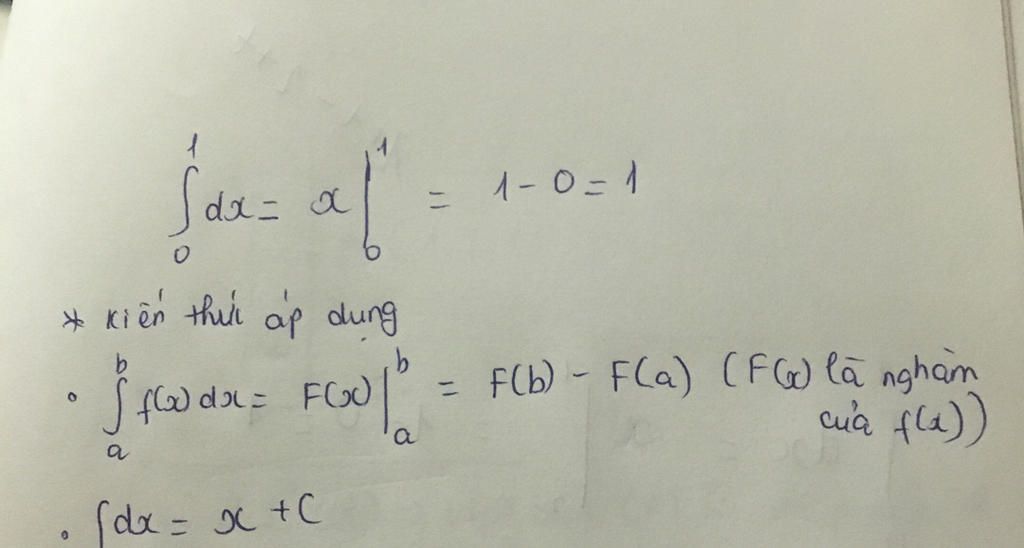 ∫₀¹ dx = x |₀¹ = 1 - 0 = 1
* Kiến thức áp dụng
• ∫ₐᵇ f(x) dx = F(x) |ₐᵇ = F(b) - F(a) (F(x) là nghàm
của f(x))
• ∫dx = x + C